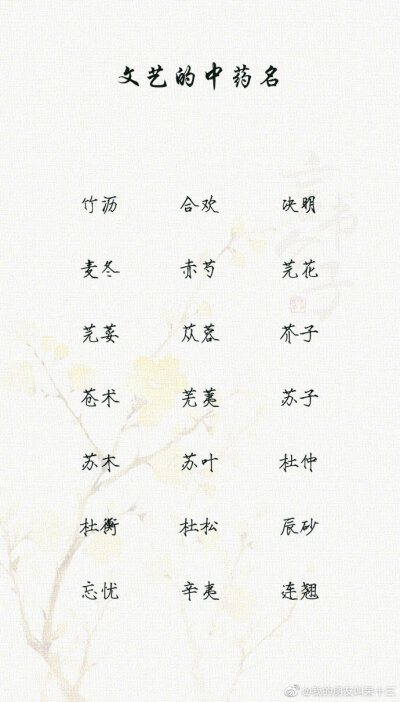 文艺的中药名
竹沥 合欢 决明
麦冬 赤芍 芫花
芫荽 苁蓉 芥子
苍术 芜荑 苏子
苏木 苏叶 杜仲
杜衡 杜松 辰砂
忘忧 辛夷 连翘